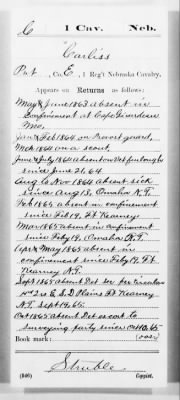 C | 1 Cav. | Neb.
Carliss
Pvt, Co. E, 1 Reg't Nebraska Cavalry,
Appears on Returns as follows:
May & June 1863 absent in
Confinement at Cape Girardeau
Mo.
Jan & Feb 1864 on Provost guard,
Mch 1864 on a scout,
June & July 1864 absent on Vet furlough
since June 21, 64
Aug to Nov 1864 absent sick
since Aug 13, Omaha N.T.
Feb 1865 absent in confinement
since Feb 19, Ft Kearney
Mar 1865 absent in confinement
since Feby 19, Omaha N.T.
Apr & May 1865 absent in
confinement since Feby 19, Ft
Kearney N.T.
Sept 1865 absent Det ser per Circular
Hd 2rs E. S. D Plains Ft Kearney
N.T. Sept 19, 65.
Oct 1865 absent Det escort to
surveying party since Oct 10, 65
Book mark: (over)
Struble
(546) Copyist.